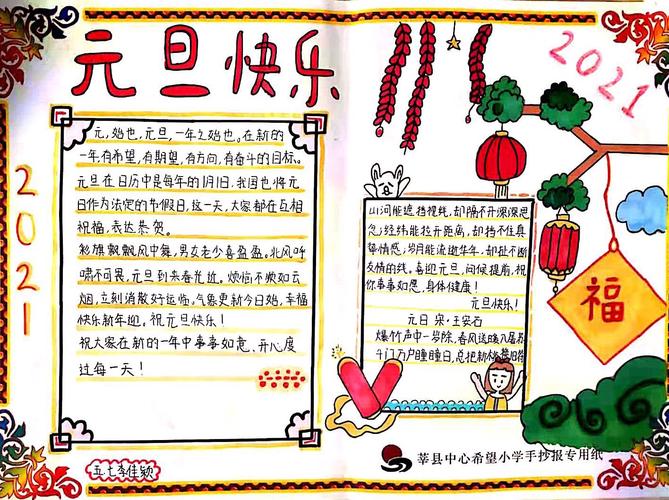 元旦快乐
2021
元,始也,元旦,一年之始也。在新的
一年,有希望,有期望,有方向,有奋斗的目标。
元旦在日历中是每年的1月1日,我国也将元
旦作为法定的节假日,这一天,大家都在互相
祝福,表达恭贺。
彩旗飘飘风中舞,男女老少喜盈盈。北风呼
啸不可畏,元旦到来春光近。烦恼不顺如云
烟,立刻消散好运临。气象更新今日始,幸福
快乐新年迎。祝元旦快乐!
祝大家在新的一年中事事如意、开心度
过每一天!
2021
福
山河能遮挡视线,却隔不开深深思
念;经纬能拉开距离,却挡不住真
挚情感;岁月能流逝年华,却扯不断
友情的线。喜迎元旦,问候提前,祝
你事事如愿,身体健康!
元旦快乐!
元日 宋·王安石
爆竹声中一岁除,春风送暖入屠苏
千门万户瞳瞳日,总把新桃换旧符
莘县中心希望小学手抄报专用纸